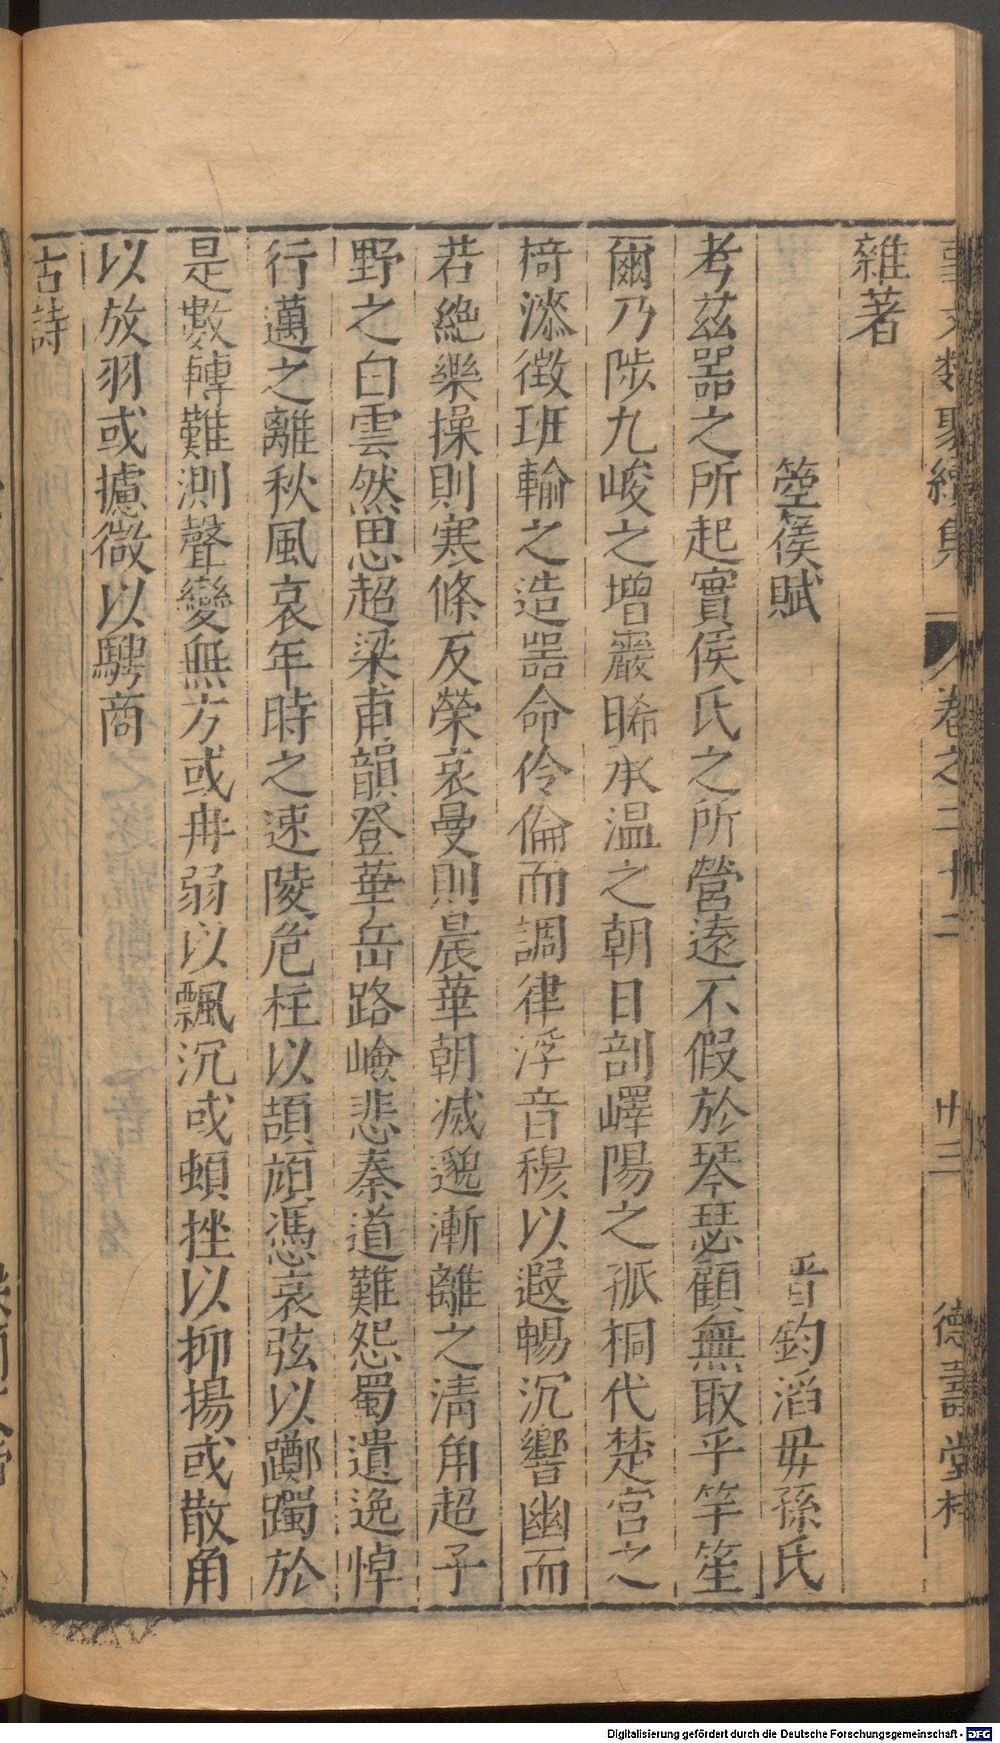 事文類聚續集 卷之二十二 卄三 德壽堂梓
雜著
箜篌賦 晉鈞滔毋孫氏
考茲器之所起實侯氏之所營遠不假於琴瑟顧無取乎竽笙
爾乃陟九峻之增巖晞承温之朝日剖嶧陽之孤桐代楚宮之
椅漆徴班輸之造器命伶倫而調律浮音穆以遐暢沉響幽而
若絶樂操則寒條反榮哀曼則晨華朝滅邈漸離之清角超子
野之白雲然思超梁甫韻登華岳路嶮悲秦道難怨蜀遺逸悼
行邁之離秋風哀年時之速陵危柱以頡頏憑哀弦以躑躅於
是數轉難測聲變無方或冉弱以飄沉或頓挫以抑揚或散角
以放羽或攄微以騁商
古詩
Digitalisierung gefördert durch die Deutsche Forschungsgemeinschaft - DFG